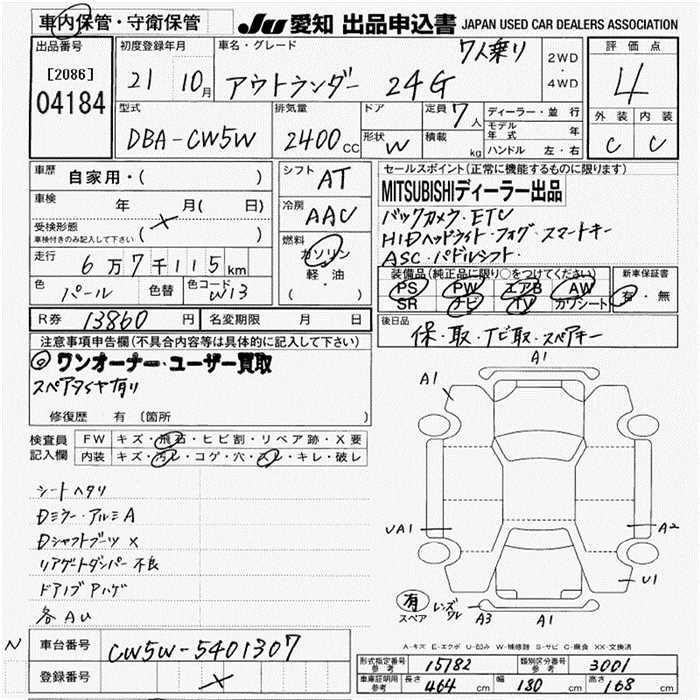 車内保管・守衛保管
JU 愛知 出品申込書 JAPAN USED CAR DEALERS ASSOCIATION
出品番号
[2086]
04184
初度登録年月
21 10月
車名・グレード
7人乗り
アウトランダー 24G
2WD
・
4WD
評価点
4
外装 内装
C C
型式
DBA-CW5W
排気量
2400cc
ドア
形状 W
定員 7人
積載 kg
ディーラー・並行
モデル年式 年
ハンドル 左・右
車歴
自家用・( )
車検 年 月( 日)
受検形態
車検付きのみ記入して下さい
( × )
走行
6万7千115km
色 パール 色替 色コード W13
シフト AT
冷房 AAC
燃料
ガソリン
軽・油
(・ )
セールスポイント(正常に機能するものに限ります)
MITSUBISHIディーラー出品
バックカメラ・ETC
HIDヘッドライト・フォグ・スマートキー
ASC・パドルシフト・
装備品(純正品に限り○をつけてください)
PS PW エアB AW
SR ナビ TV カワシート
新車保証書
有・無
R券 13860円 名変期限 月 日
後日品
保・取・ナビ取・スペアキー
注意事項申告欄(不具合内容等は具体的に記入して下さい)
◎ワンオーナー・ユーザー買取
スペアタイヤ有り
修復歴 有 [箇所 ]
検査員記入欄
FW キズ・飛石・ヒビ割・リペア跡・X要
内装 キズ・汚レ・コゲ・穴・スレ・キレ・破レ
シートヘタリ
Dミラー・アルミA
Dシャフトブーツ ×
リアゲートダンパー不良
ドアノブ ハゲ
各AU
A1
A1
UA1
A2
U1
有
スペア
レンズワレ
A3
A1
A-キズ E-エクボ U-凹み W-補修跡 S-サビ C-腐食 XX-交換済
N
車台番号 CW5W-5401307
登録番号 ×
形式指定番号 参考 15782 類別区分番号 参考 3001
車庫証明用 参考 長さ 464cm 幅 180cm 高さ 168cm